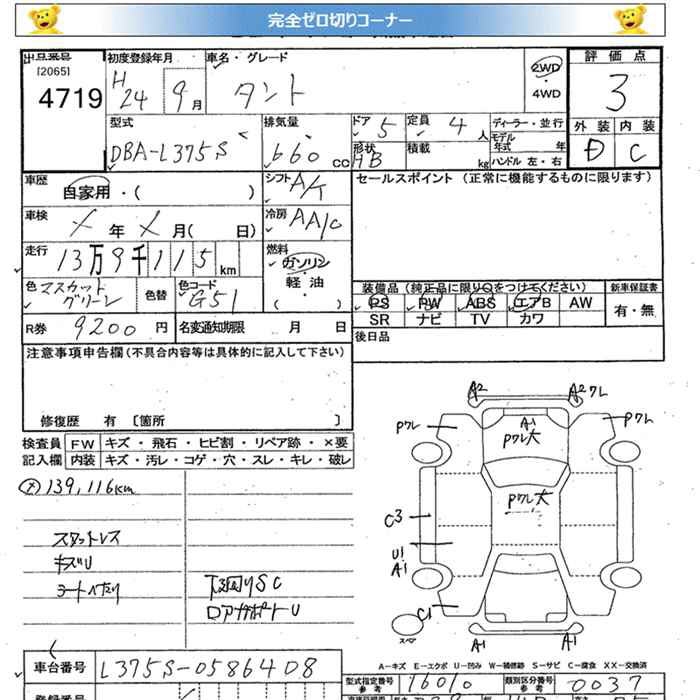 完全ゼロ切りコーナー
出品番号
[2065]
4719
初度登録年月
H24 9月
車名・グレード
タント
2WD
・
4WD
評価点
3
外装 内装
D C
型式
DBA-L375S
排気量
660 CC
ドア 5
定員 4人
形状 HB
積載 kg
ディーラー・並行
モデル年式 年
ハンドル 左・右
車歴
自家用・( )
シフト A/T
セールスポイント (正常に機能するものに限ります)
車検
メ年メ月( 日)
冷房 AA/C
走行
13万9千115km
燃料
ガソリン
軽油
( )
色 マスカットグリーン
色替
色コード G51
装備品 (純正品に限り○をつけてください)
新車保証書
PS PW ABS エアB AW
SR ナビ TV カワ
有・無
R券 9200円
名変通知期限 月 日
後日品
注意事項申告欄(不具合内容等は具体的に記入して下さい)
修復歴 有 〔箇所 〕
検査員
記入欄
FW キズ・飛石・ヒビ割・リペア跡・×要
内装 キズ・汚レ・コゲ・穴・スレ・キレ・破レ
139,116km
スタットレス
キズU
下廻りSC
A2
A2 クレ
Pクレ
A1
Pクレ大
Pクレ
Pクレ大
C3
U1
A1
C1
スペア
A1
A1
A-キズ E-エクボ U-凹み W-補修跡 S-サビ C-腐食 XX-交換済
車台番号 L375S-0586408
型式指定番号 参考 16010
類別区分番号 参考 0037
登録番号